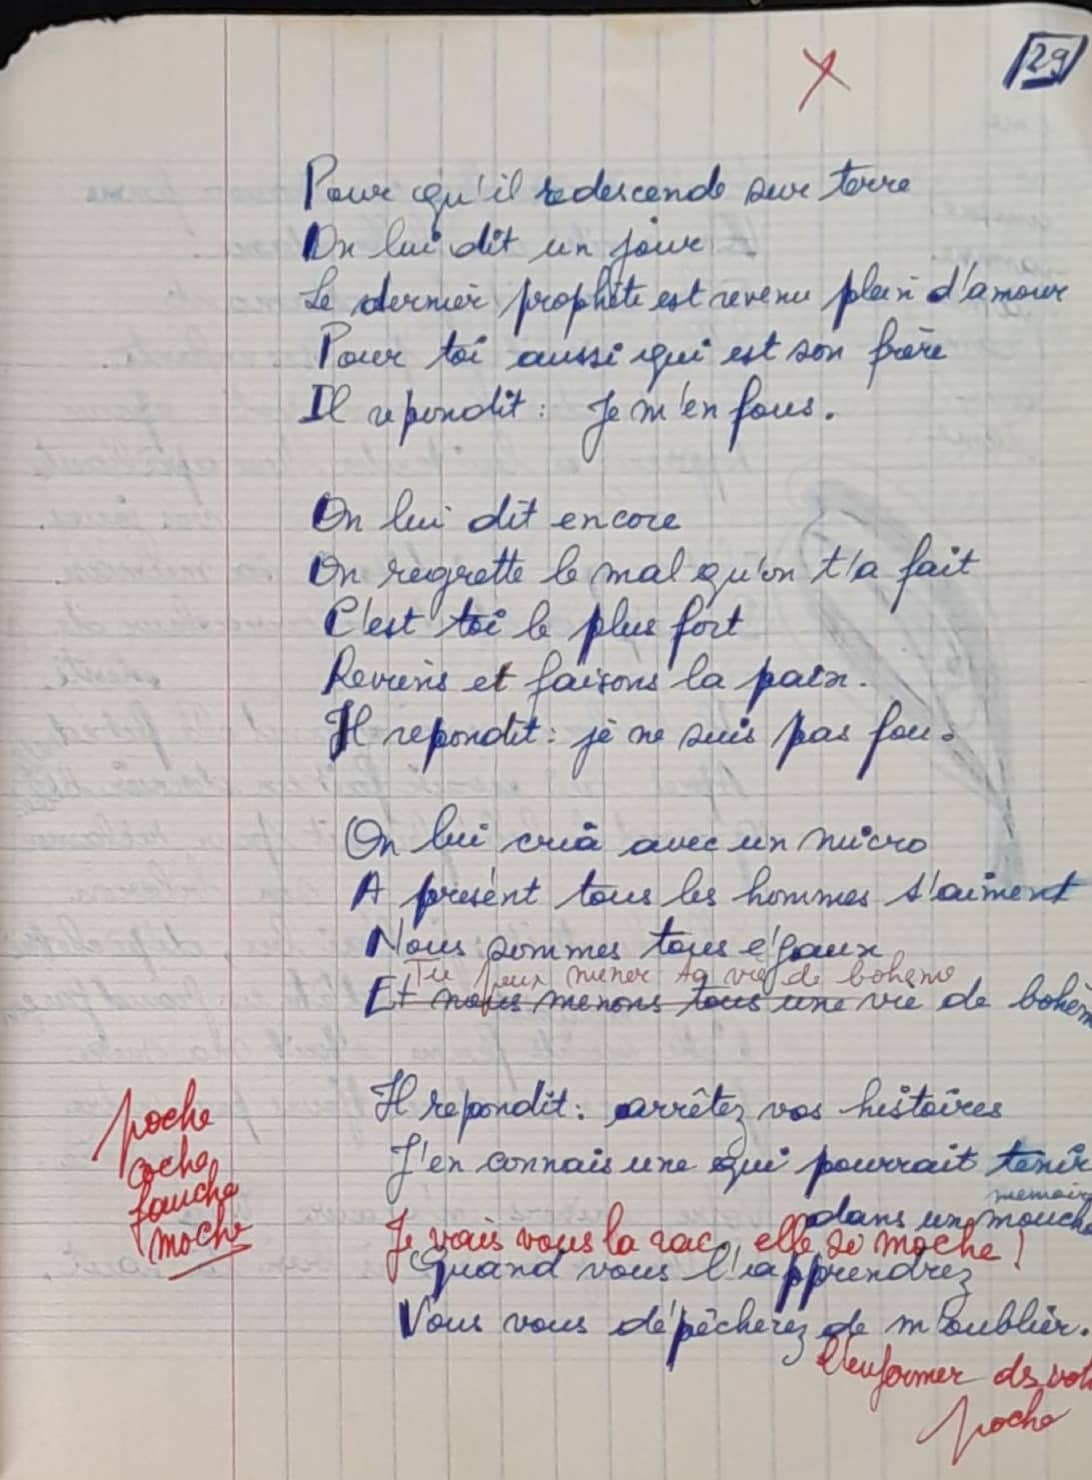 29
Pour qu'il redescende sur terre
On lui dit un jour
Le dernier prophète est revenu plein d'amour
Pour toi aussi qui est son frère
Il repondit : Je m'en fous.
On lui dit encore
On regrette le mal qu'on t'a fait
C'est toi le plus fort
Reviens et faisons la paix.
Il repondit : je ne suis pas fou.
On lui cria avec un micro
A présent tous les hommes s'aiment
Nous sommes tous égaux
Tu peux mener ta vie de bohème
Et nous menons tous une vie de bohèm
Il repondit : arrêtez vos histoires
J'en connais une qui pourrait tenir
memoir
dans un mouch
Je vais vous la rac, elle si moche !
Quand vous l'apprendrez
Vous vous dépêcherez de m'oublier.
l'enfermer ds vot
poche
poche
coche
fauche
moche